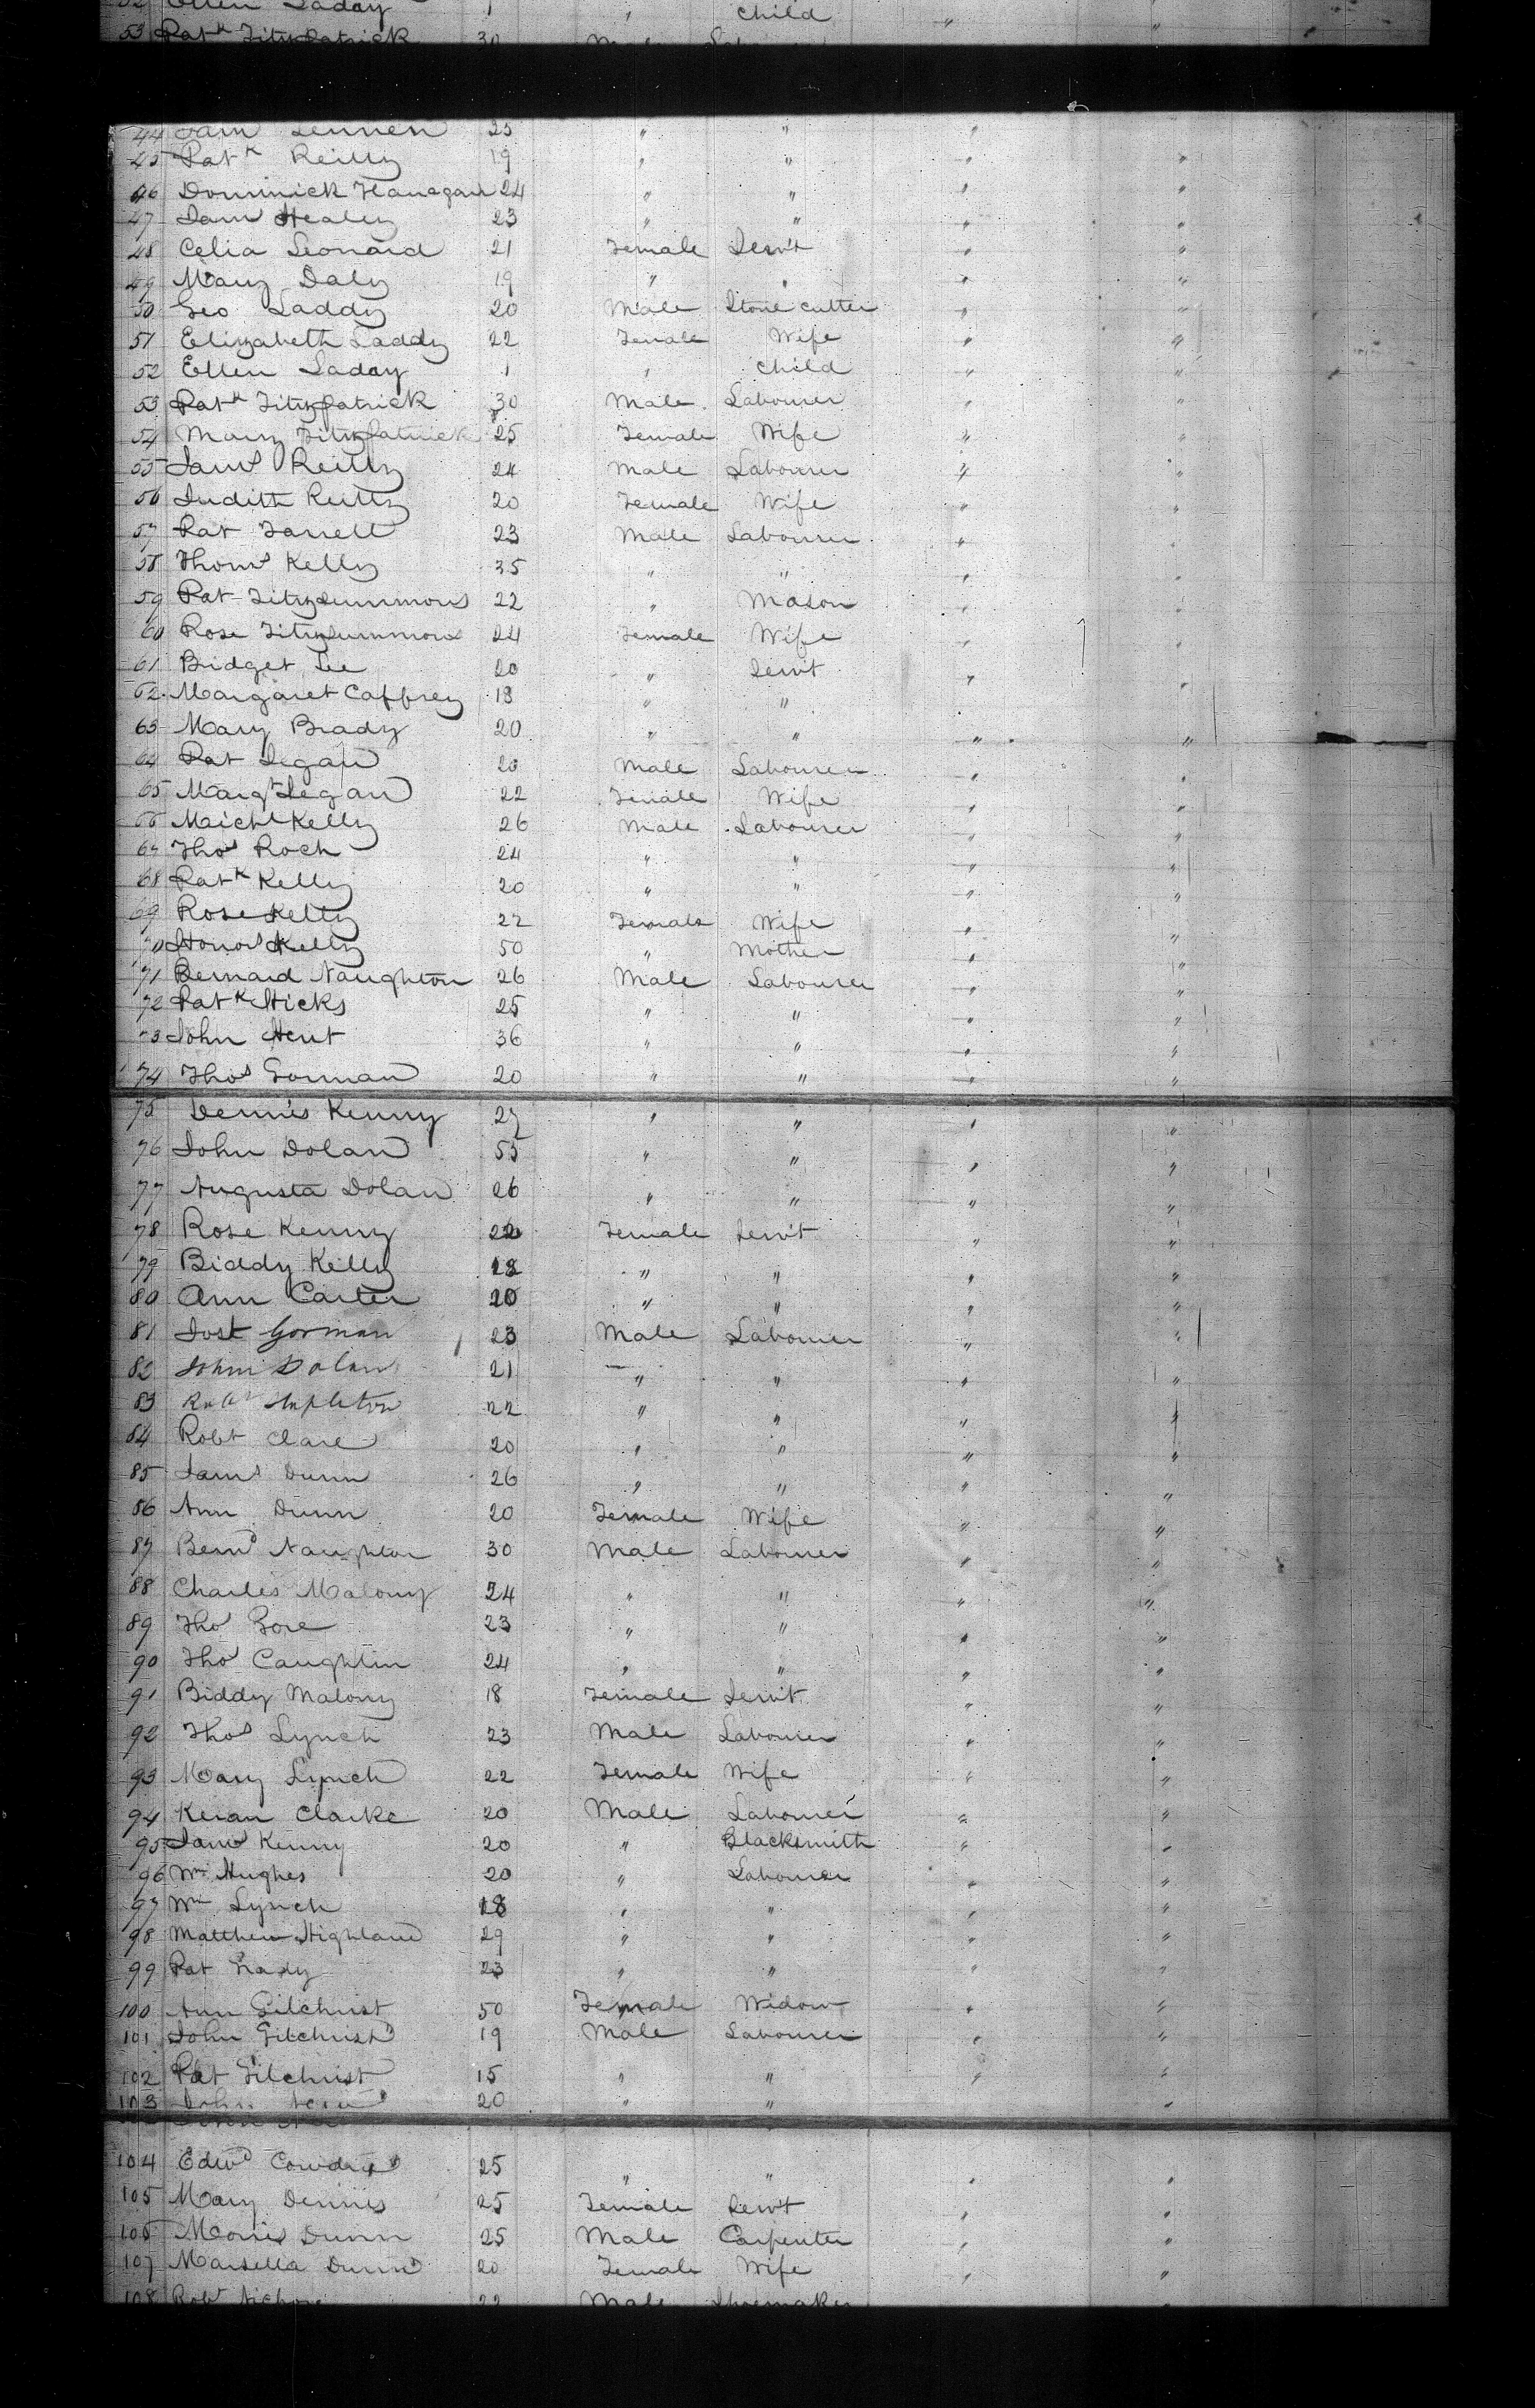 52 Ellen Laday 1 " Child " "
53 Patk Fitzpatrick 30 Male Labourer
44 Jams Lennen 25 " " "
45 Patk Reilly 19 " " " "
46 Dominick Flanagan 24 " " " "
47 Jams Healey 23 " " " "
48 Celia Leonard 21 Female Serv't " "
49 Mary Daly 19 " " " "
50 Geo Laddy 20 Male Stone cutter " "
51 Elizabeth Laddy 22 Female Wife " "
52 Ellen Laday 1 " Child " "
53 Patk Fitzpatrick 30 Male Labourer " "
54 Mary Fitzpatrick 25 Female Wife " "
55 Jams Reilly 24 Male Labourer " "
56 Judith Reilly 20 Female Wife " "
57 Pat Farrell 23 Male Labourer " "
58 Thoms Kelly 35 " " " "
59 Pat Fitzsummons 22 " Mason " "
60 Rose Fitzsummons 24 Female Wife " "
61 Bridget Lee 20 " Serv't " "
62 Margaret Caffrey 18 " " "
63 Mary Brady 20 " " " "
64 Pat Degan 20 Male Labourer " "
65 Margt Degan 22 Female Wife " "
66 Michl Kelly 26 Male Labourer " "
67 Thos Roch 24 " " " "
68 Patk Kelly 20 " " " "
69 Rose Kelly 22 Female Wife " "
70 Honor Kelly 50 " Mother " "
71 Bernard Naughton 26 Male Labourer " "
72 Patk Hicks 25 " " " "
73 John Hunt 36 " " " "
74 Thos Gorman 20 " " " "
75 Dennis Kenny 27 " " " "
76 John Dolan 55 " " " "
77 Augusta Dolan 26 " " " "
78 Rose Kenny 22 Female Serv't " "
79 Biddy Kelly 18 " " " "
80 Ann Carter 20 " " " "
81 Gorman 23 Male Labourer " "
82 John Dolan 21 " " " "
83 Robt Stapleton 22 " " " "
84 Robt Clare 20 " " " "
85 Jams Dunn 26 " " " "
86 Ann Dunn 20 Female Wife " "
87 Bernd Naughton 30 Male Labourer " "
88 Charles Malony 24 " " " "
89 Thos Gore 23 " " " "
90 Thos Caughlin 24 " " " "
91 Biddy Malony 18 Female Serv't " "
92 Thos Lynch 23 Male Labourer " "
93 Mary Lynch 22 Female Wife " "
94 Keran Clarke 20 Male Labourer " "
95 Jams Kenny 20 " Blacksmith " "
96 Wm Hughes 20 " Labourer " "
97 Wm Lynch 18 " " " "
98 Matthew Highland 29 " " " "
99 Pat Grady 23 " " " "
100 Ann Gilchrist 50 Female Widow " "
101 John Gilchrist 19 Male Labourer " "
102 Pat Gilchrist 15 " " " "
103 John 20 " " "
104 Edwd 25 " " " "
105 Mary Dennis 25 Female Serv't " "
106 Morris Dunn 25 Male Carpenter " "
107 Marsella Dunn 20 Female Wife " "
108 Robt 22 Male Shoemaker